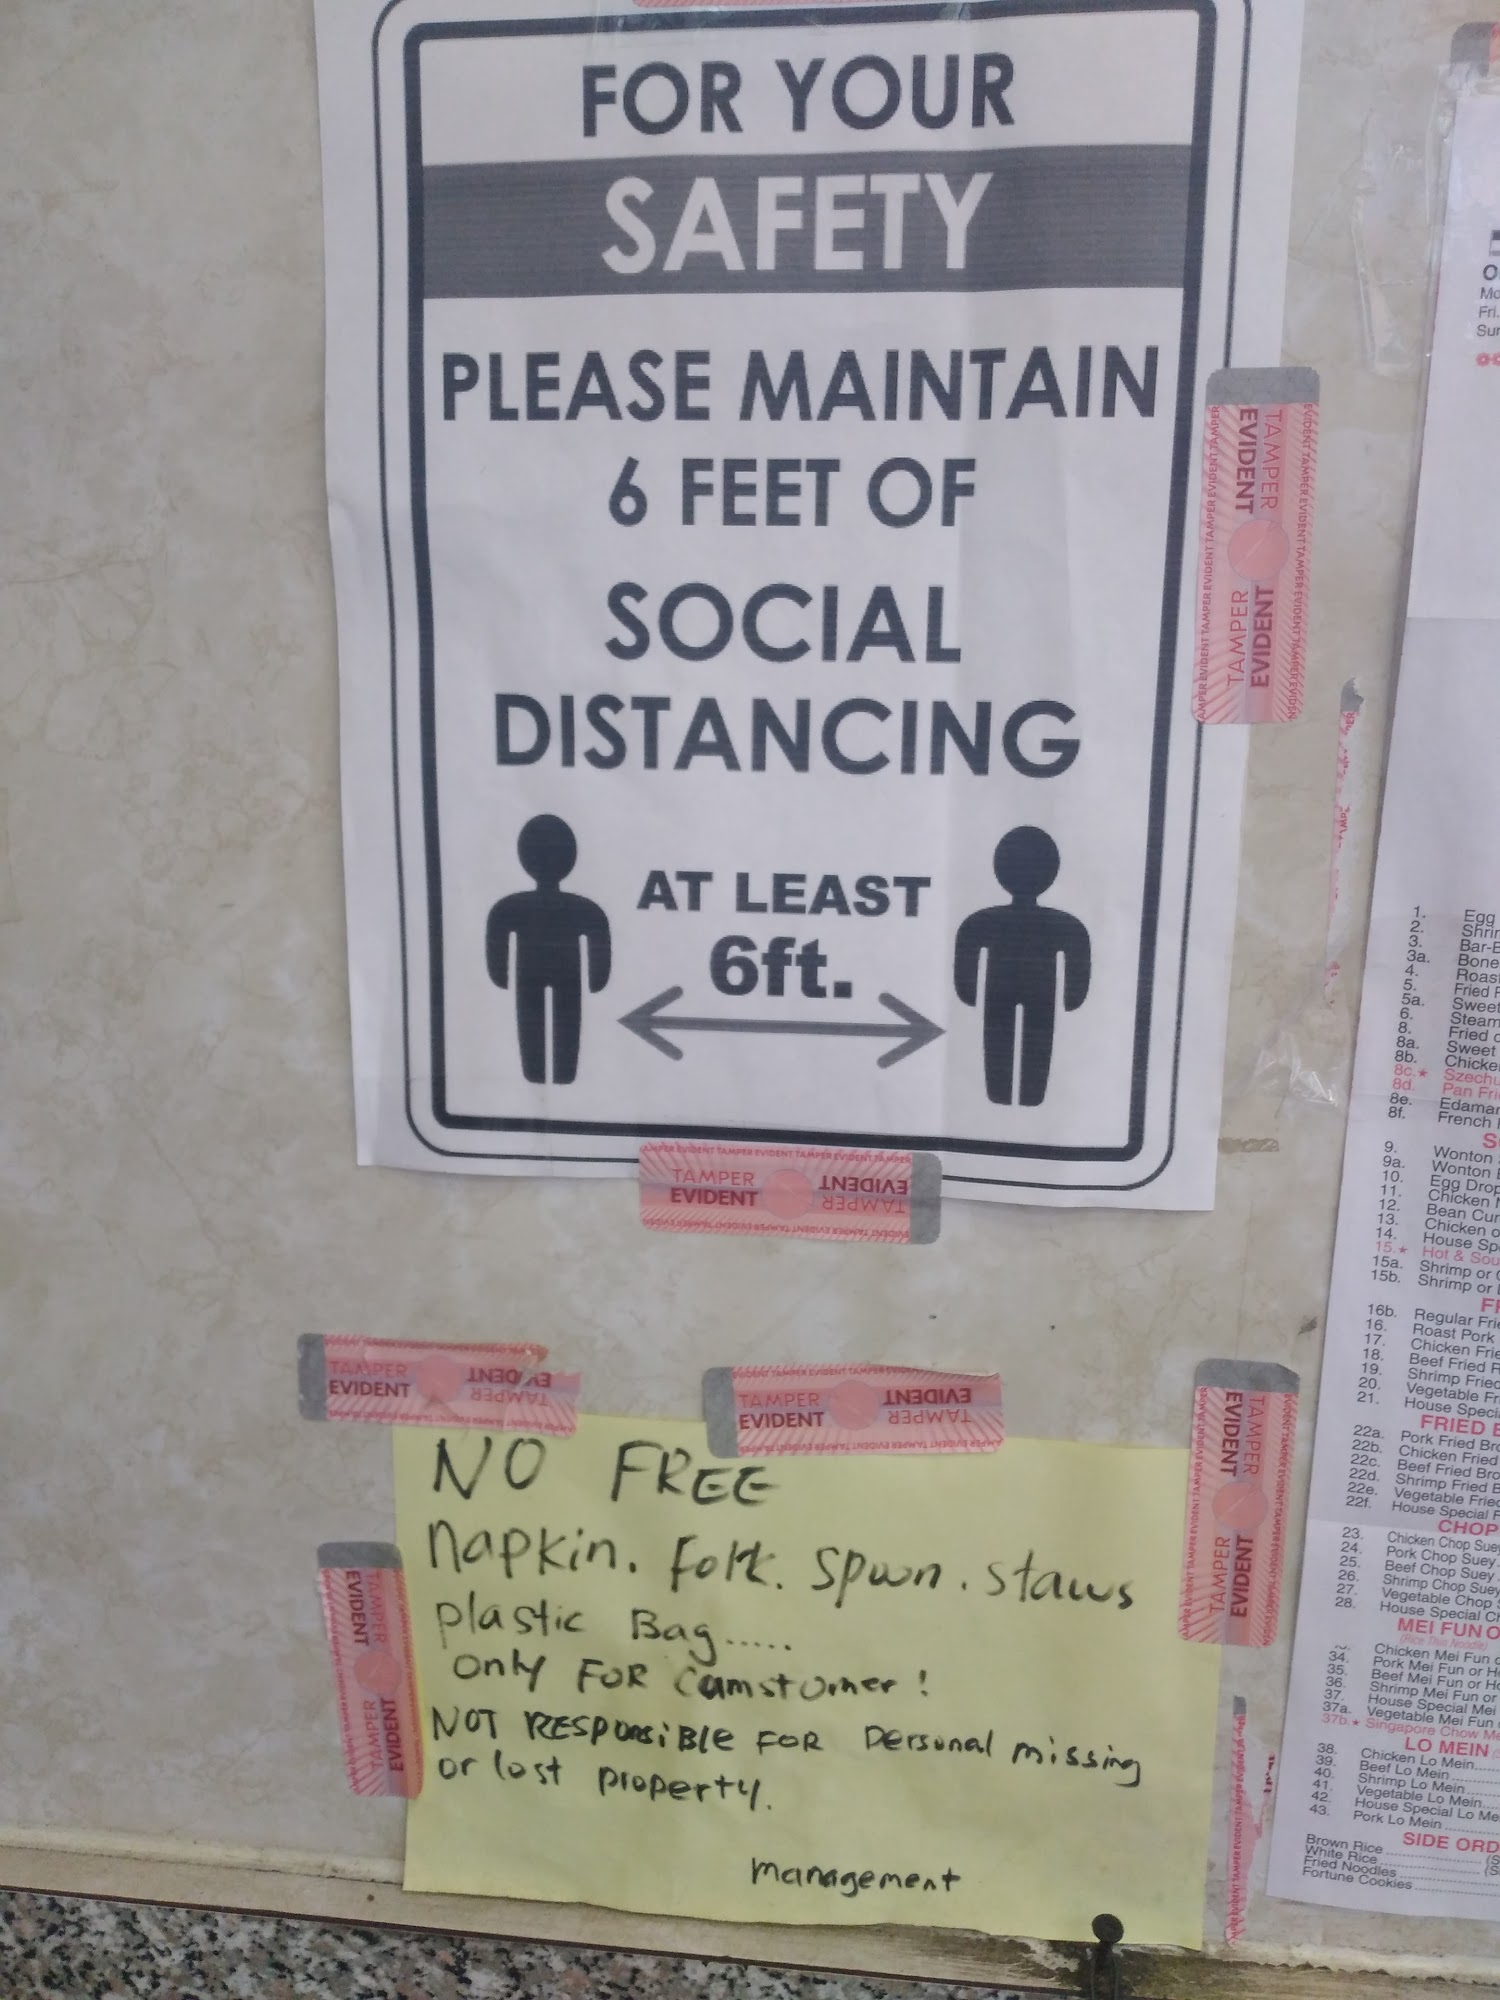 FOR YOUR
SAFETY
PLEASE MAINTAIN
6 FEET OF
SOCIAL
DISTANCING
AT LEAST
6ft.
TAMPER EVIDENT
TAMPER EVIDENT
TAMPER EVIDENT
TAMPER EVIDENT
TAMPER EVIDENT
TAMPER EVIDENT
TAMPER EVIDENT
TAMPER EVIDENT
NO FREE
napkin. fork. spwn. staws
plastic Bag.....
only FOR Camstomer!
NOT RESPONSiBle FOR personal missing
or lost property.
management
TAMPER EVIDENT
TAMPER EVIDENT
TAMPER EVIDENT
TAMPER EVIDENT
Fri.
1. Egg
2.
3.
3a.
4. Roast
5. Fried
5a. Sweet
6. Steam
8. Fried
8a. Sweet
8b.
8c.★
8d. Pan
8e.
8f. French
9. Wonton
9a. Wonton
10. Egg Drop
11. Chicken
12. Bean
13. Chicken
14. House
15.★ Hot &
15a. Shrimp or
15b. Shrimp or
16b. Regular
16. Roast Pork
17. Chicken
18. Beef Fried
19. Shrimp Fried
20. Vegetable
21. House
FRIED
22a. Pork Fried
22b. Chicken Fried
22c. Beef Fried
22d. Shrimp Fried
22e. Vegetable
22f. House Special
CHOP
23. Chicken Chop Suey
24. Pork Chop Suey
25. Beef Chop Suey
26. Shrimp Chop Suey
27. Vegetable Chop
28. House Special
MEI FUN
(Rice Thin Noodle)
Chicken Mei Fun
34. Pork Mei Fun or
35. Beef Mei Fun or
36. Shrimp Mei Fun or
37. House Special Mei
37a. Vegetable Mei Fun
37b.★ Singapore Chow
LO MEIN
38. Chicken Lo Mein
39. Beef Lo Mein
40. Shrimp Lo Mein
41. Vegetable Lo Mein
42. House Special Lo
43. Pork Lo Mein
SIDE
Brown Rice
White Rice
Fried Noodles
Fortune Cookies